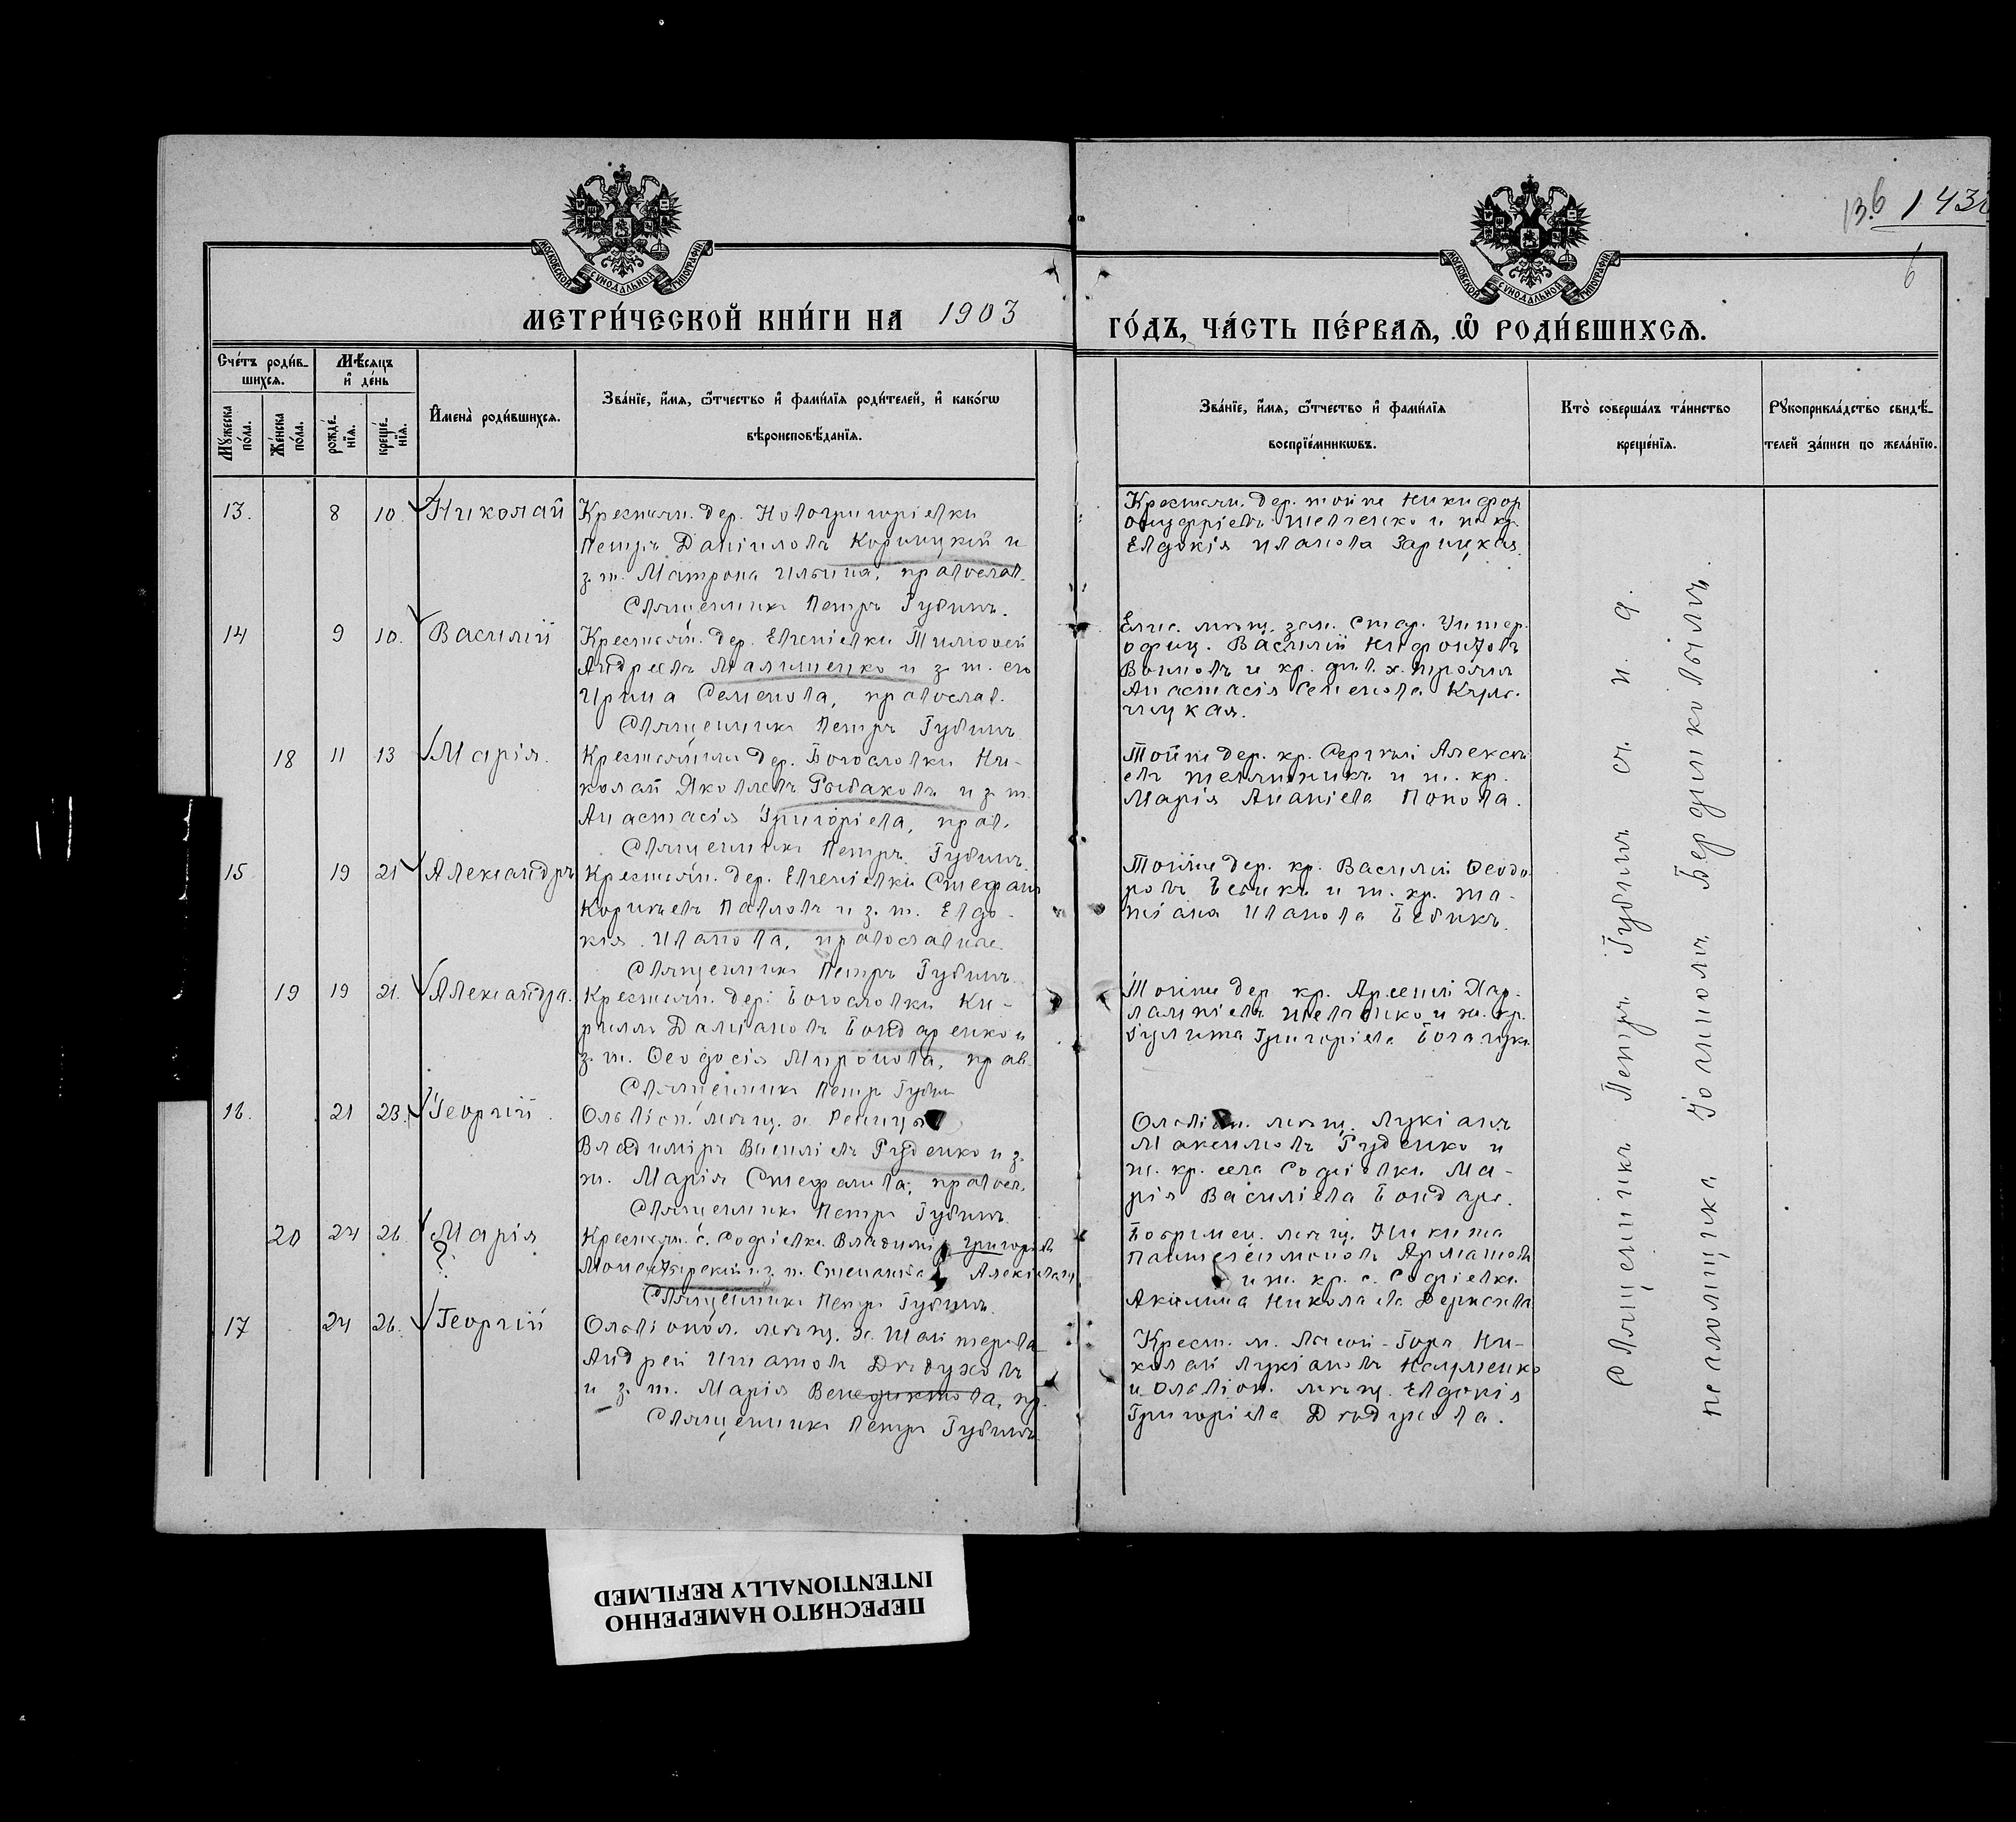 13.6 143
6
МОСКОВСКОЙ СѴНОДАЛЬНОЙ ТИПОГРАФІИ
МОСКОВСКОЙ СѴНОДАЛЬНОЙ ТИПОГРАФІИ
МЕТРИ́ЧЕСКОЙ КНИ́ГИ НА 1903
ГО́ДЪ, ЧА́СТЬ ПЕ́РВАѦ, Ѡ҆ РОДИ́ВШИХСѦ.
Сче́тъ роди́в-
шихсѧ.
Мѣ́сѧцъ
и҆ де́нь
Мꙋ́жеска
по́ла.
Же́нска
по́ла.
рожде́-
нїѧ.
креще́-
нїѧ.
И҆мена̀ роди́вшихсѧ.
Зва́нїе, и҆́мѧ, ѻ҆́тчество и҆ фами́лїѧ роди́телей, и҆ како́гѡ
вѣроисповѣ́данїѧ.
Зва́нїе, и҆́мѧ, ѻ҆́тчество и҆ фами́лїѧ
воспрїе́мникѡвъ.
Кто̀ соверша́лъ та́инство
креще́нїѧ.
Рꙋкоприкла́дство свидѣ́-
телей за́писи по жела́нїю.
13. 8 10. Николай Крестьян. дер. Новогригоріевки
Петръ Даніиловъ Корницкій и
з. ж. Матрона Ильина, православ.
Священникъ Петръ Губинъ.
Крестьян. дер. тойже Никифор
Онуфріевъ Шевченко и ж. кр.
Евдокія Иванова Зарицкая.
14 9 10. Василій Крестьян. дер. Евгеніевки Тимоѳей
Андреевъ Малишенко и з. ж. его
Ирина Семенова, православ.
Священникъ Петръ Губинъ
Елис. мѣщ. зап. стар. унтер.
офиц. Василій Нифонтовъ
и кр. х. Трояна
Анастасія Семенова
18 11 13 Марія. Крестьянинъ дер. Богословки Ни-
колай Яковлевъ Рыбаковъ и з. ж.
Анастасія Григоріева, прав.
Священникъ Петръ Губинъ
Тойже дер. кр. Сергѣй Алексѣ
евъ и ж. кр.
Марія Ананіева Попова.
15 19 21 Александръ Крестьян. дер. Евгеніевки Стефанъ
Корнѣевъ Павловъ и з. ж. Евдо-
кія Иванова, православные
Священникъ Петръ Губинъ
Тойже дер. кр. Василій Ѳеодо
ровъ Бебикъ и ж. кр. Та-
тіана Иванова Бебикъ.
19 19 21. Александра. Крестьян. дер. Богословки Ки-
риллъ Даміановъ Бондаренко и
з. ж. Ѳеодосія Миронова, прав.
Священникъ Петръ Губин
Тойже дер. кр. Арсеній Хар-
лампіевъ и ж. кр.
Іулита Григоріева
16. 21 23. Георгій. Ольвіоп. мѣщ. х.
Владиміръ Василіевъ Руденко и з.
ж. Марія Стефанова, правосл.
Священникъ Петръ Губинъ.
Ольвіоп. мѣщ. Лукіанъ
Максимовъ Руденко и
ж. кр. села Софіевки Ма-
рія Василіева Бондарь.
20 24 26 Марія
?
Крестьян. с. Софіевки Владиміръ Григоріев
Монастырскій и з. ж. Степанида Алексіева
Священникъ Петръ Губинъ.
Бобринец. мѣщ. Никита
Пантелеимоновъ
и ж. кр. с. Софіевки
Акилина Николаева
17 24 26. Георгій Ольвіопол. мѣщ. х.
Андрей Игнатовъ Дѣдуховъ
и з. ж. Марія Венедиктова, пр.
Священникъ Петръ Губинъ
Крест. м. Лысой-Горы Ни-
колай Лукіановъ Науменко
и Ольвіоп. мѣщ. Евдокія
Григоріева Дѣдухова.
Священникъ Петръ Губинъ съ и. д.
псаломщика Іоанномъ
ПЕРЕСНЯТО НАМЕРЕННО
INTENTIONALLY REFILMED